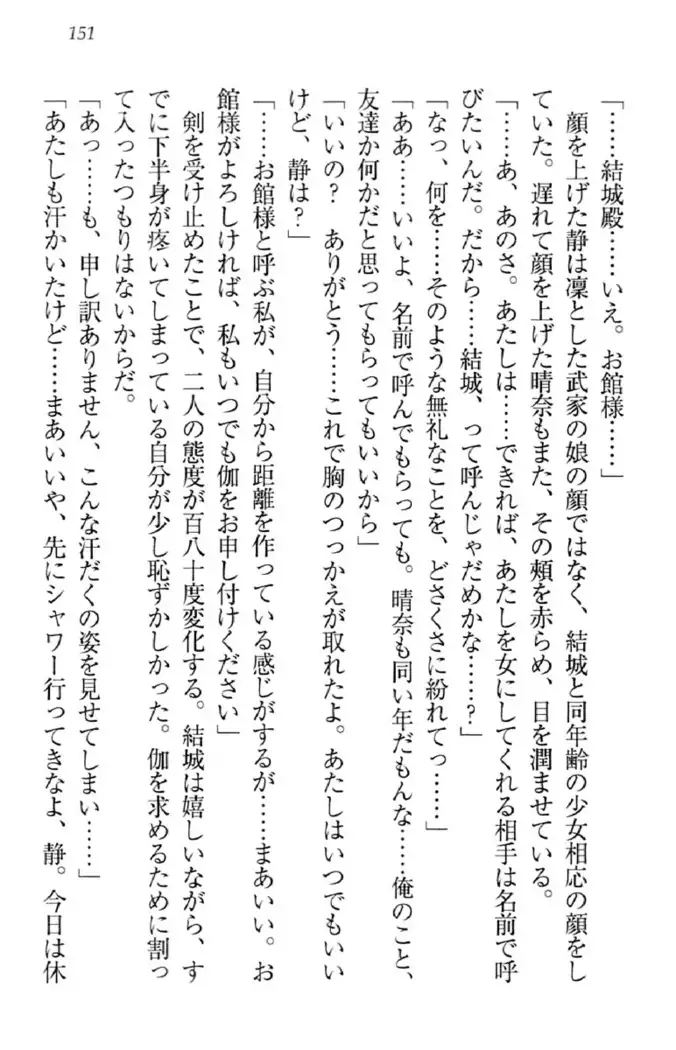 151
「……結城殿……いえ。お館様……」
顔を上げた静は凜とした武家の娘の顔ではなく、結城と同年齢の少女相応の顔をし
ていた。遅れて顔を上げた晴奈もまた、その頰を赤らめ、目を潤ませている。
「……あ、あのさ。あたしは……できれば、あたしを女にしてくれる相手は名前で呼
びたいんだ。だから……結城、って呼んじゃだめかな……？」
「なっ、何を……そのような無礼なことを、どさくさに紛れてっ……」
「ああ……いいよ、名前で呼んでもらっても。晴奈も同い年だもんな……俺のこと、
友達か何かだと思ってもらってもいいから」
「いいの？　ありがとう……これで胸のつっかえが取れたよ。あたしはいつでもいい
けど、静は？」
「……お館様と呼ぶ私が、自分から距離を作っている感じがするが……まあいい。お
館様がよろしければ、私もいつでも伽をお申し付けください」
剣を受け止めたことで、二人の態度が百八十度変化する。結城は嬉しいながら、す
でに下半身が疼いてしまっている自分が少し恥ずかしかった。伽を求めるために割っ
て入ったつもりはないからだ。
「あっ……も、申し訳ありません、こんな汗だくの姿を見せてしまい……」
「あたしも汗かいたけど……まあいいや、先にシャワー行ってきなよ、静。今日は休